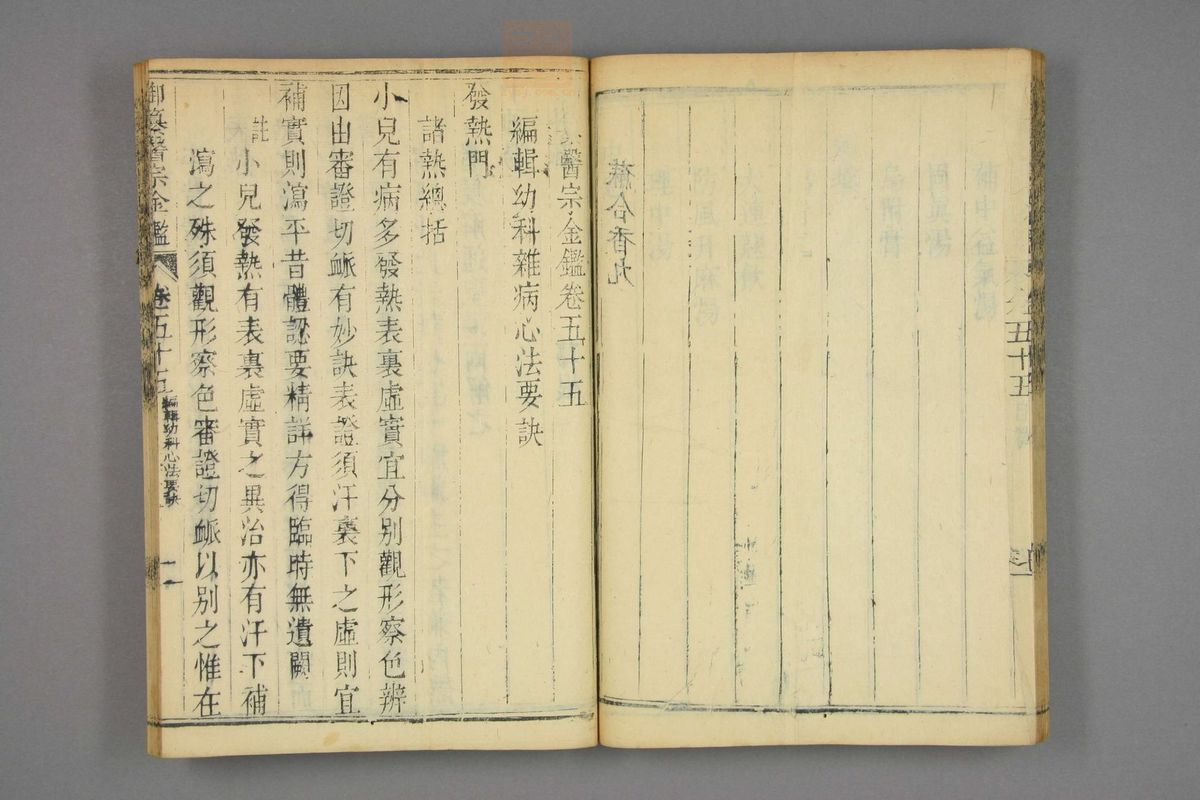 卷五十五
蘇合香丸
醫宗金鑑卷五十五
編輯幼科雜病心法要訣
發熱門
諸熱總括
小兒有病多發熱表裏虛實宜分別觀形察色辨
因由審證切脈有妙訣表證須汗裏下之虛則宜
補實則瀉平昔體認要精詳方得臨時無遺闕
註小兒發熱有表裏虛實之異治亦有汗下補
瀉之殊須觀形察色審證切脈以別之惟在
御纂醫宗金鑑 卷五十五 編輯幼科心法要訣 一